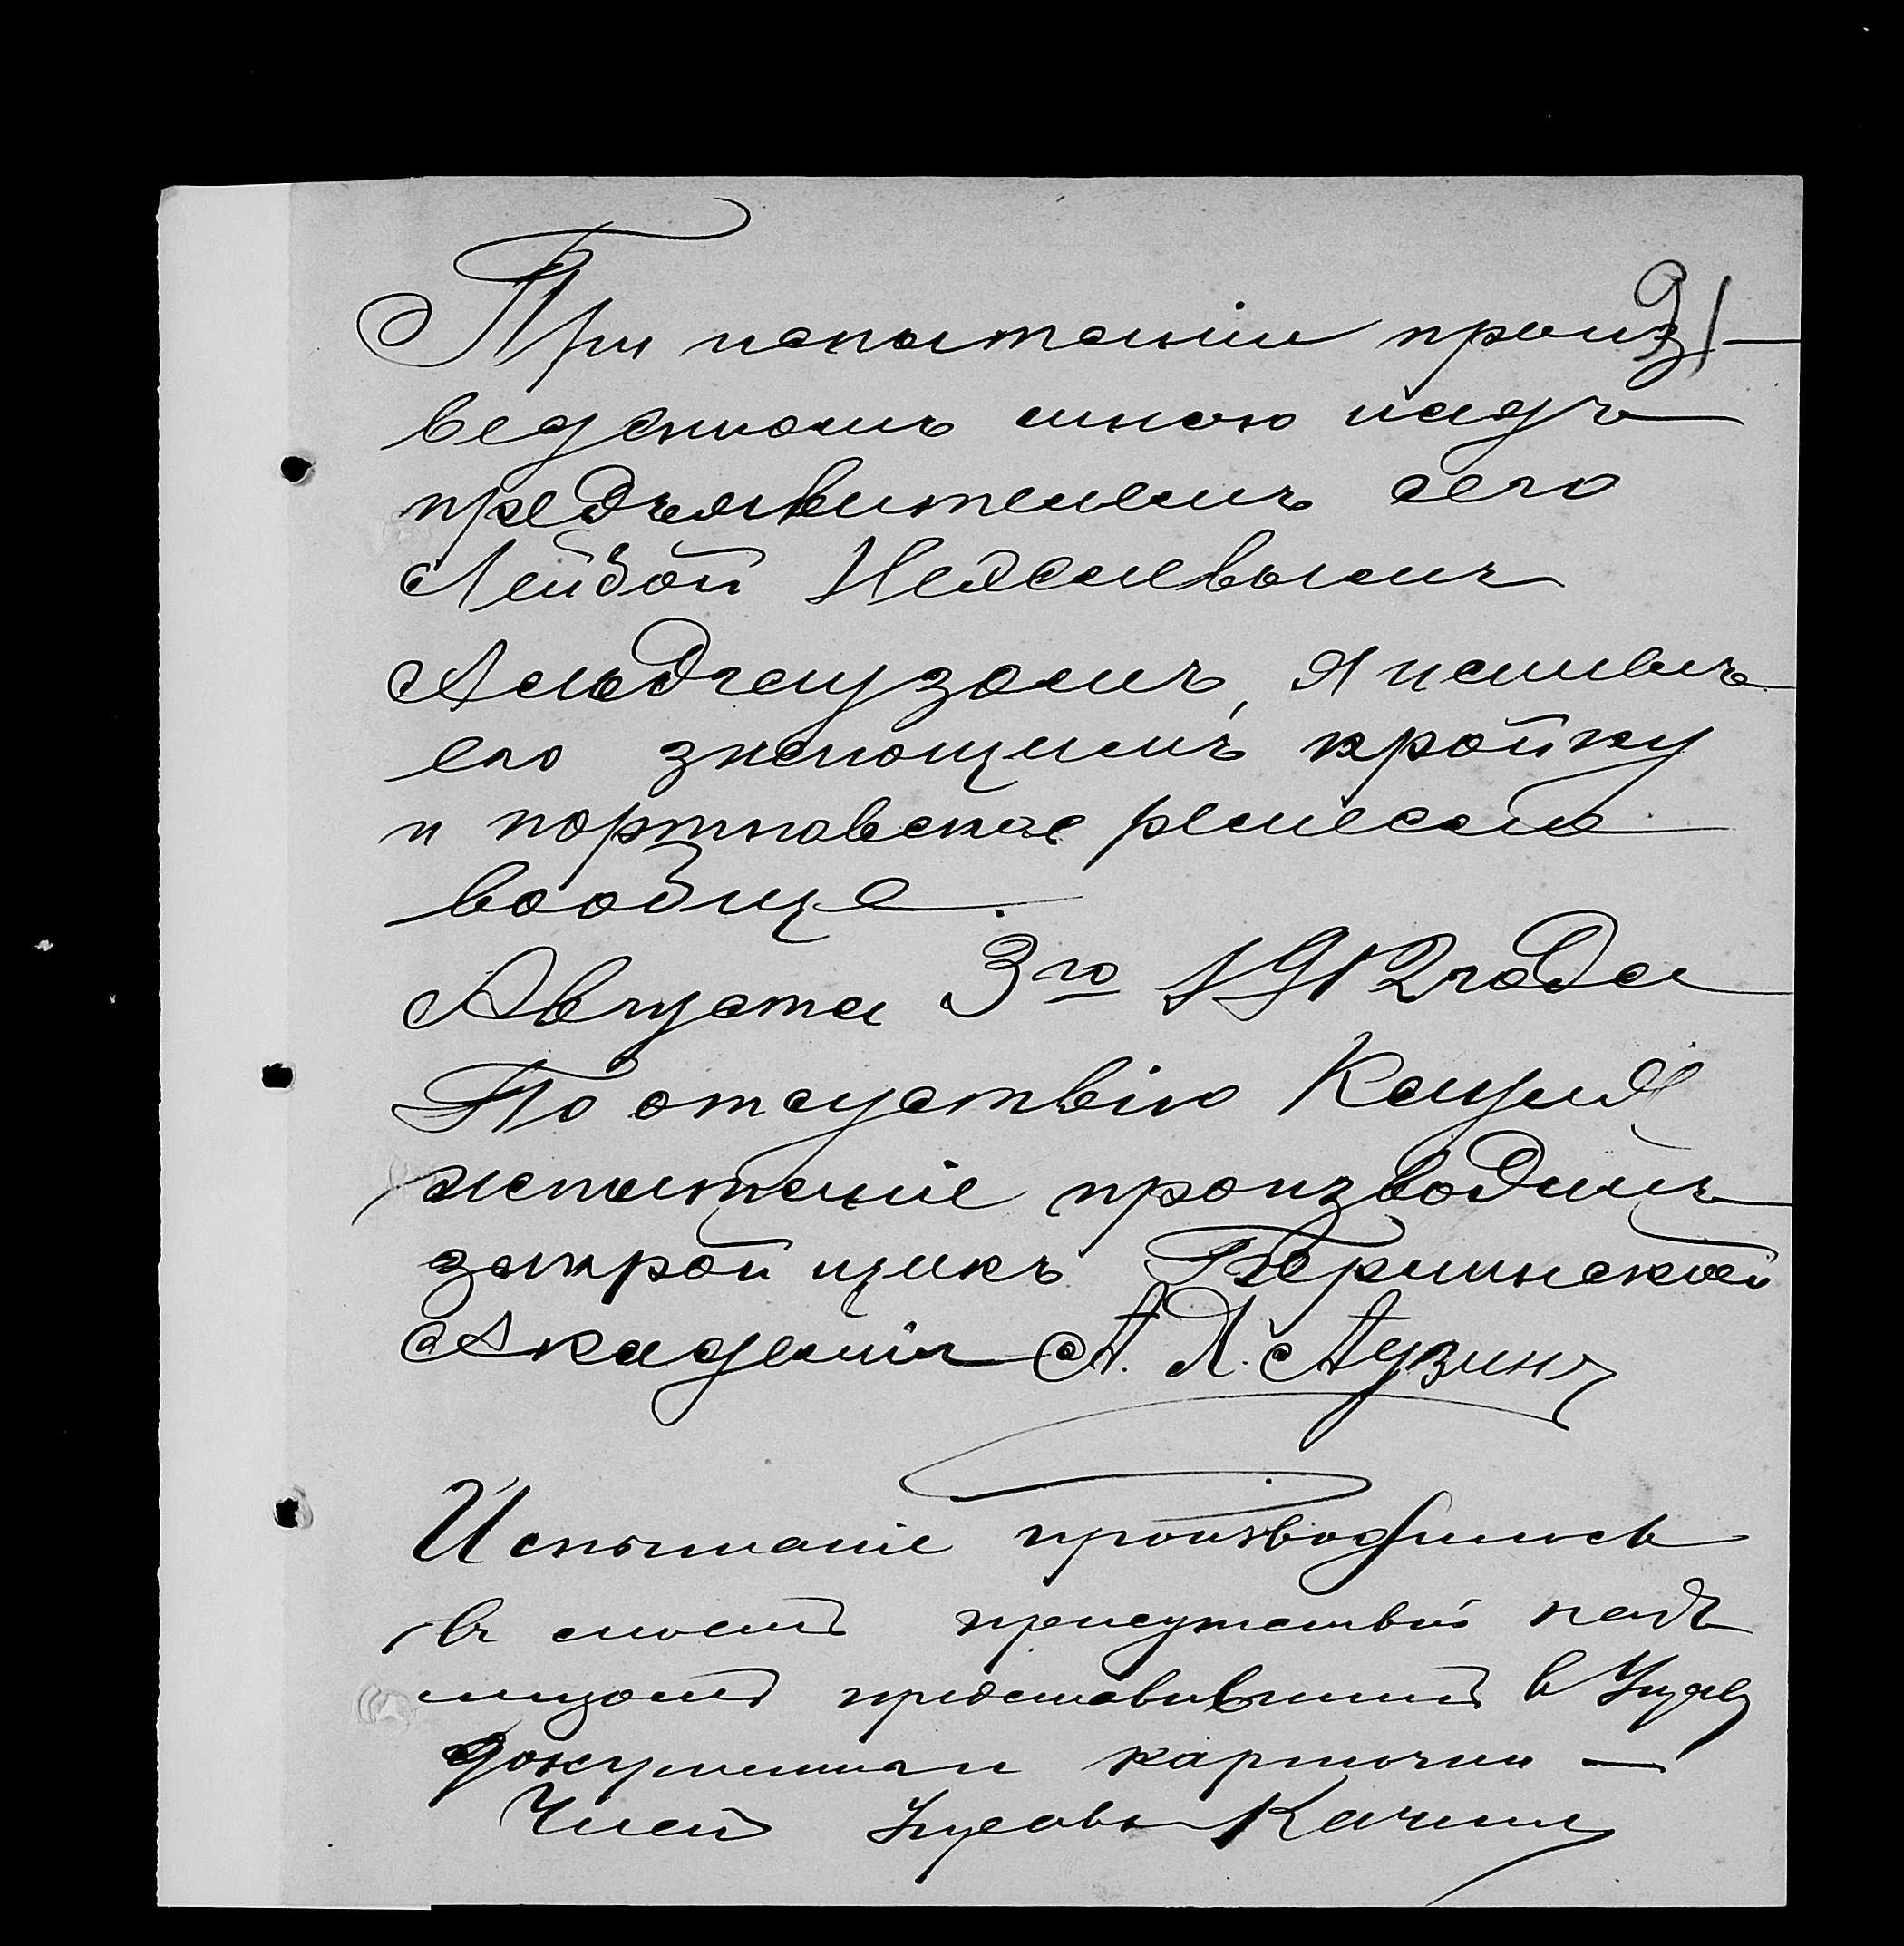 91
При испытаніи произ-
веденномъ мною надъ
предъявителемъ сего
Лейбой
Альдгаузомъ, я нашелъ
его знающимъ кройку
и портновское ремесло
вообще.
Августа 3го 1912 года
По отсутствію Кацыя
испытаніе производилъ
закройщикъ Берлинской
Академіи А. Л. Аузинъ
Испытаніе производилось
въ моемъ присутствіи надъ
лицомъ представившимъ в
документы и карточки —
Членъ Управы